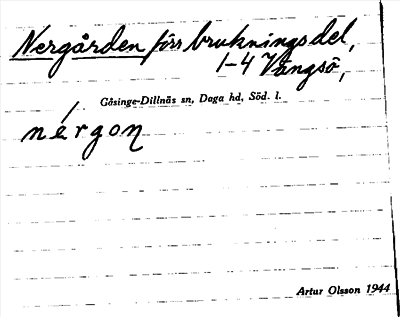 Nergården förr brukningsdel,
1-4 Vängsö,
Gåsinge-Dillnäs sn, Daga hd, Söd. l.
nérgon
Artur Olsson 1944